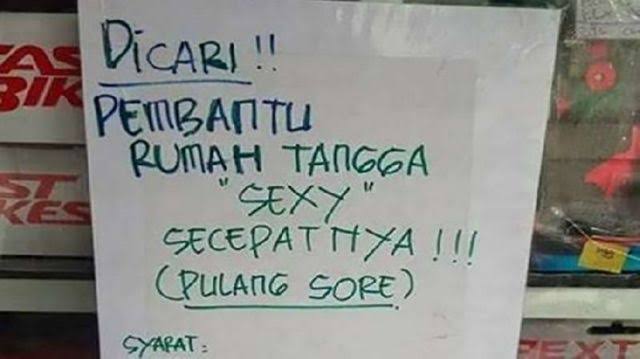 DICARI !!
PEMBANTU
RUMAH TANGGA
"SEXY"
SECEPATNYA !!!
(PULANG SORE)
SYARAT :